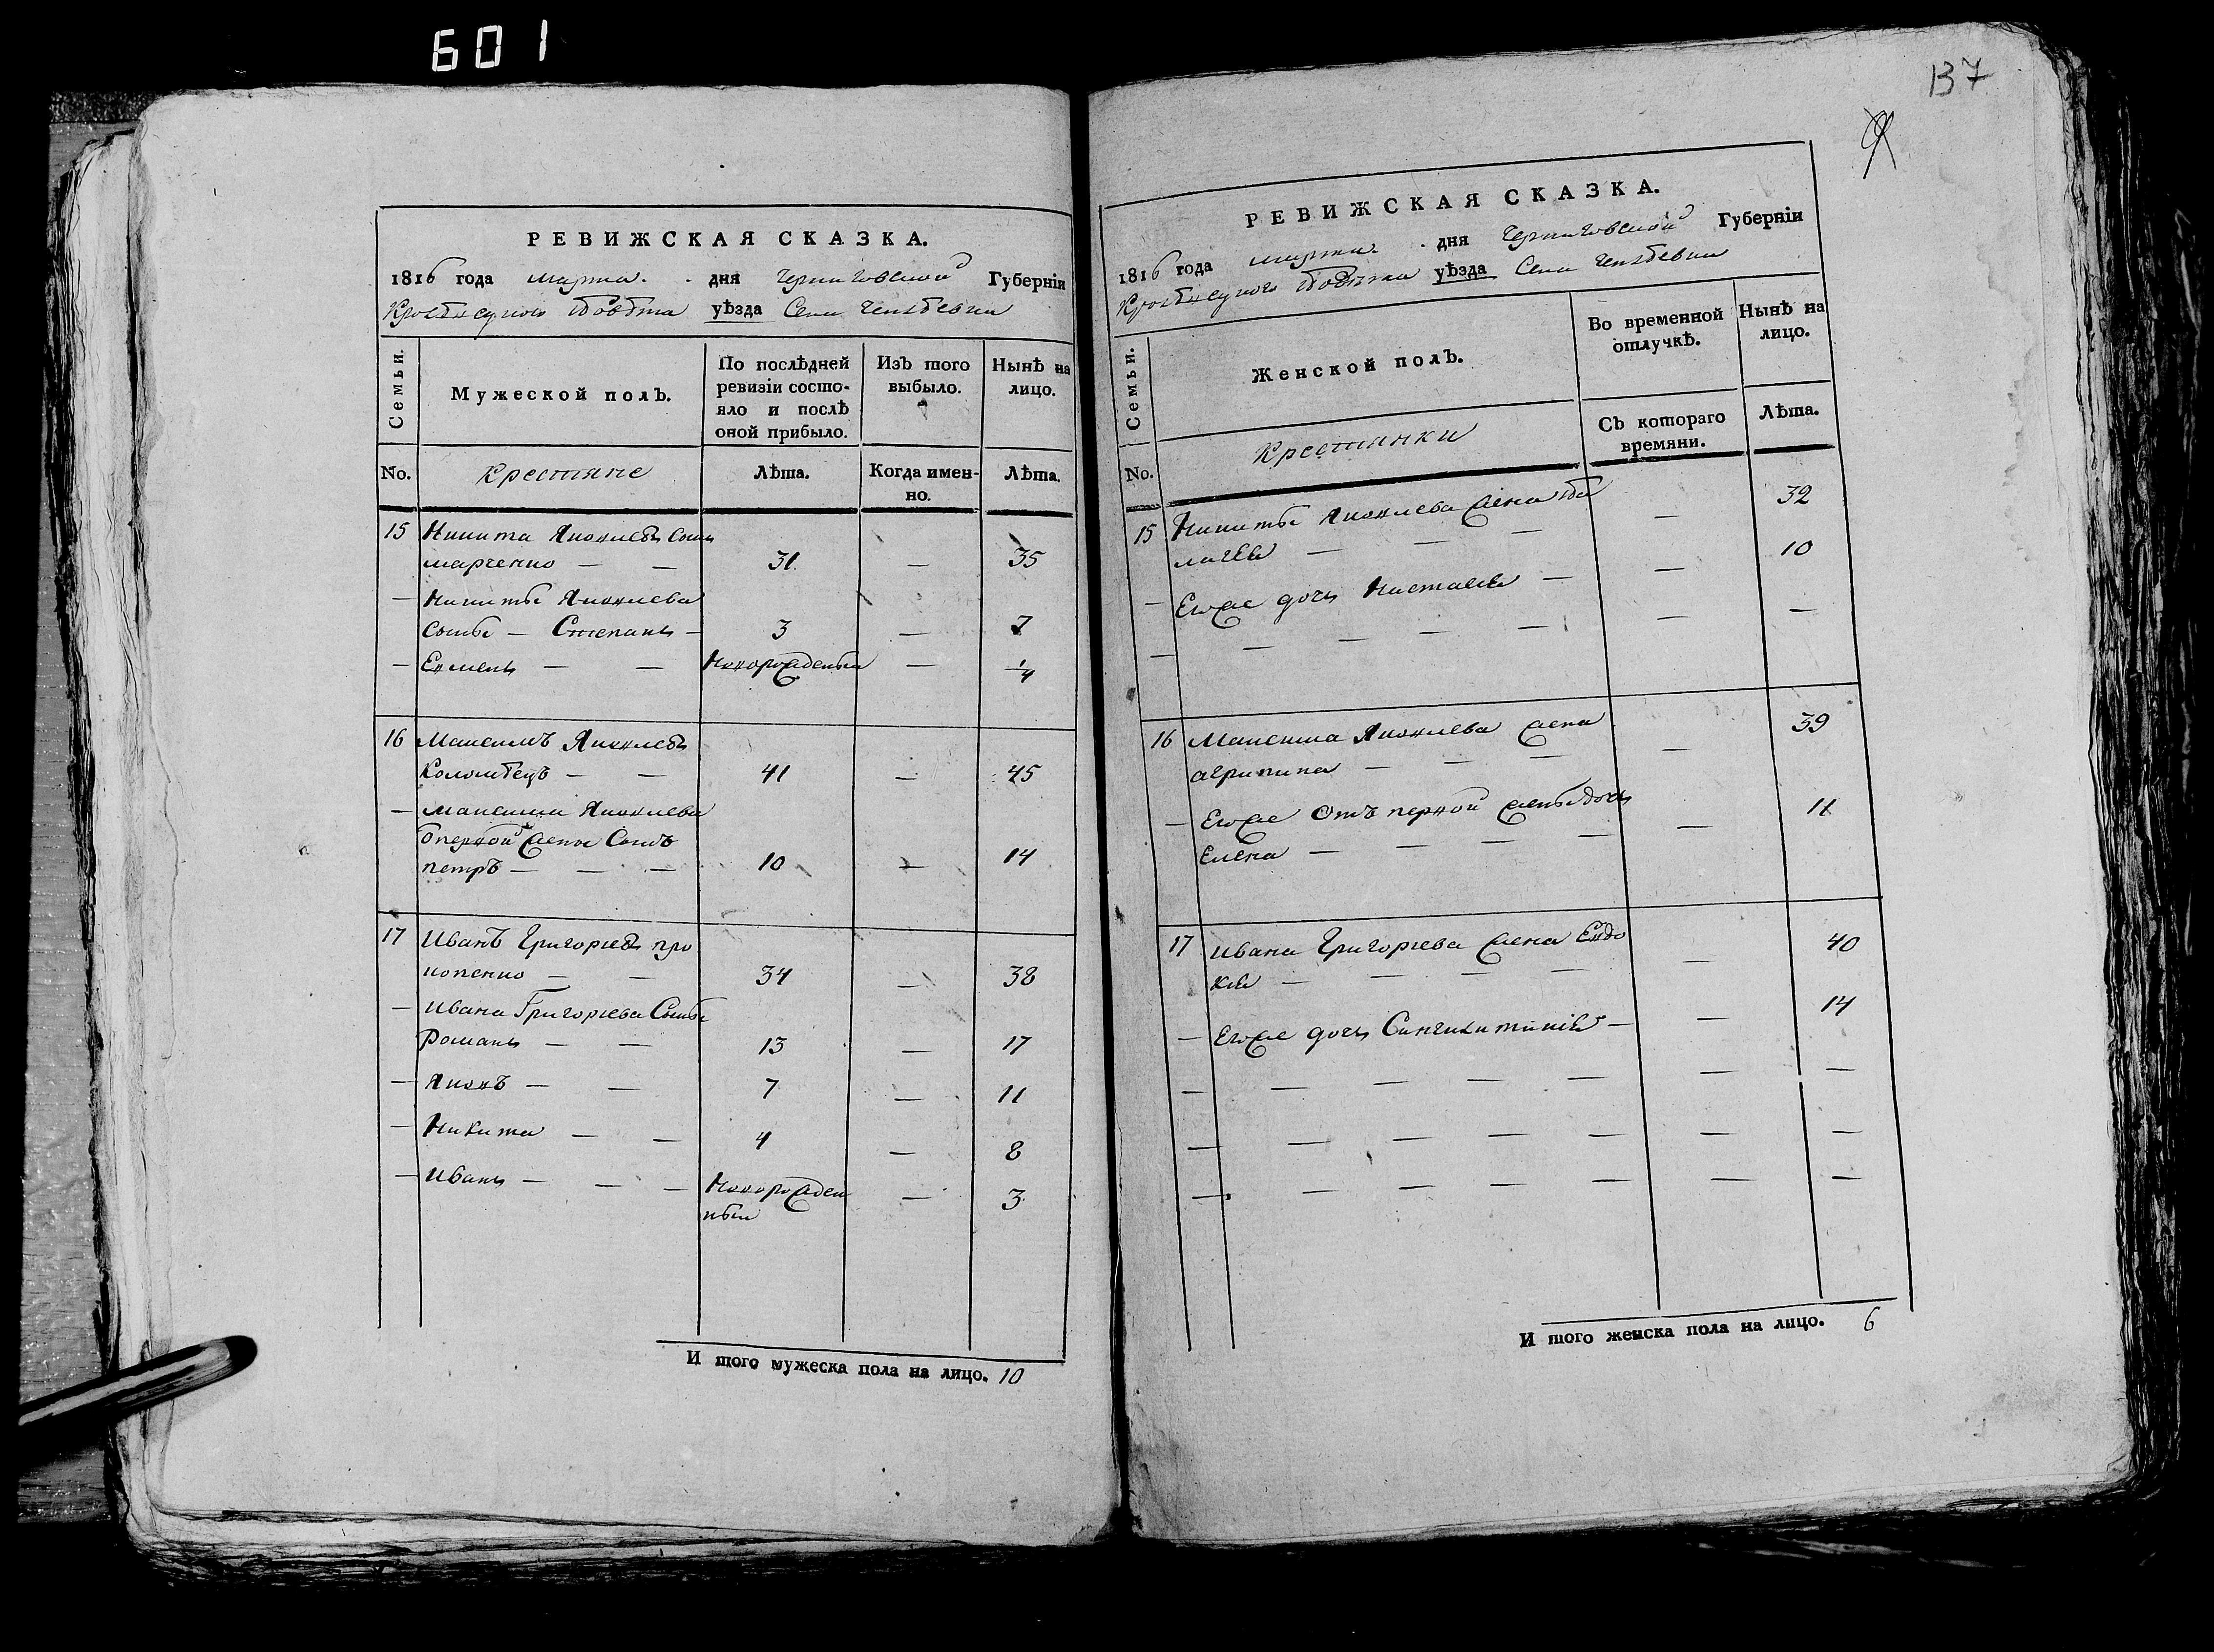 601
137
РЕВИЖСКАЯ СКАЗКА.
1816 года марта дня Черниговской Губерніи
Кролевецкого повѣта уѣзда Села
Семьи.
Мужеской полъ.
По послѣдней ревизіи состо-
яло и послѣ
оной прибыло.
Изъ того
выбыло.
Нынѣ на
лицо.
No. Крестяне Лѣта. Когда имен-
но. Лѣта.
15 Никита Яковлевъ Сынъ
марченко — — 31 — 35
— Никиты Яковлева
Сыны — Степанъ — 3 — 7
— — — Новорожденый — 1/4
16 Максимъ Яковлевъ
Коломѣецъ — — 41 — 45
— максима Яковлева
от первой жены Сынъ
петръ — — — 10 — 14
17 Иванъ Григорьевъ про
копенко — — 34 — 38
— Ивана Григорьева Сыны
Романъ — — 13 — 17
— Яковъ — — 7 — 11
— Никита — — 4 — 8
— Иванъ — — — Новорожден
ный — 3
И того мужеска пола на лицо. 10
РЕВИЖСКАЯ СКАЗКА.
1816 года марта дня Черниговской Губерніи
Кролевецкого повѣта уѣзда Села
Семьи.
Женской полъ.
Во временной
отлучкѣ.
Нынѣ на
лицо.
Съ котораго
времяни.
Лѣта.
No. Крестянки
15 Никиты Яковлева жена Пе
лагея — — — — 32
— Егоже дочь Настасья — — 10
— — — — — —
16 Максима Яковлева жена
агрипина — — — — 39
— Егоже Отъ первой жены дочь
Елена — — — — — 11
17 ивана Григорьева жена Евдо
кія — — — — — 40
— Егоже дочь — — 14
— — — — — — —
— — — — — — —
— — — — — — —
И того женска пола на лицо. 6